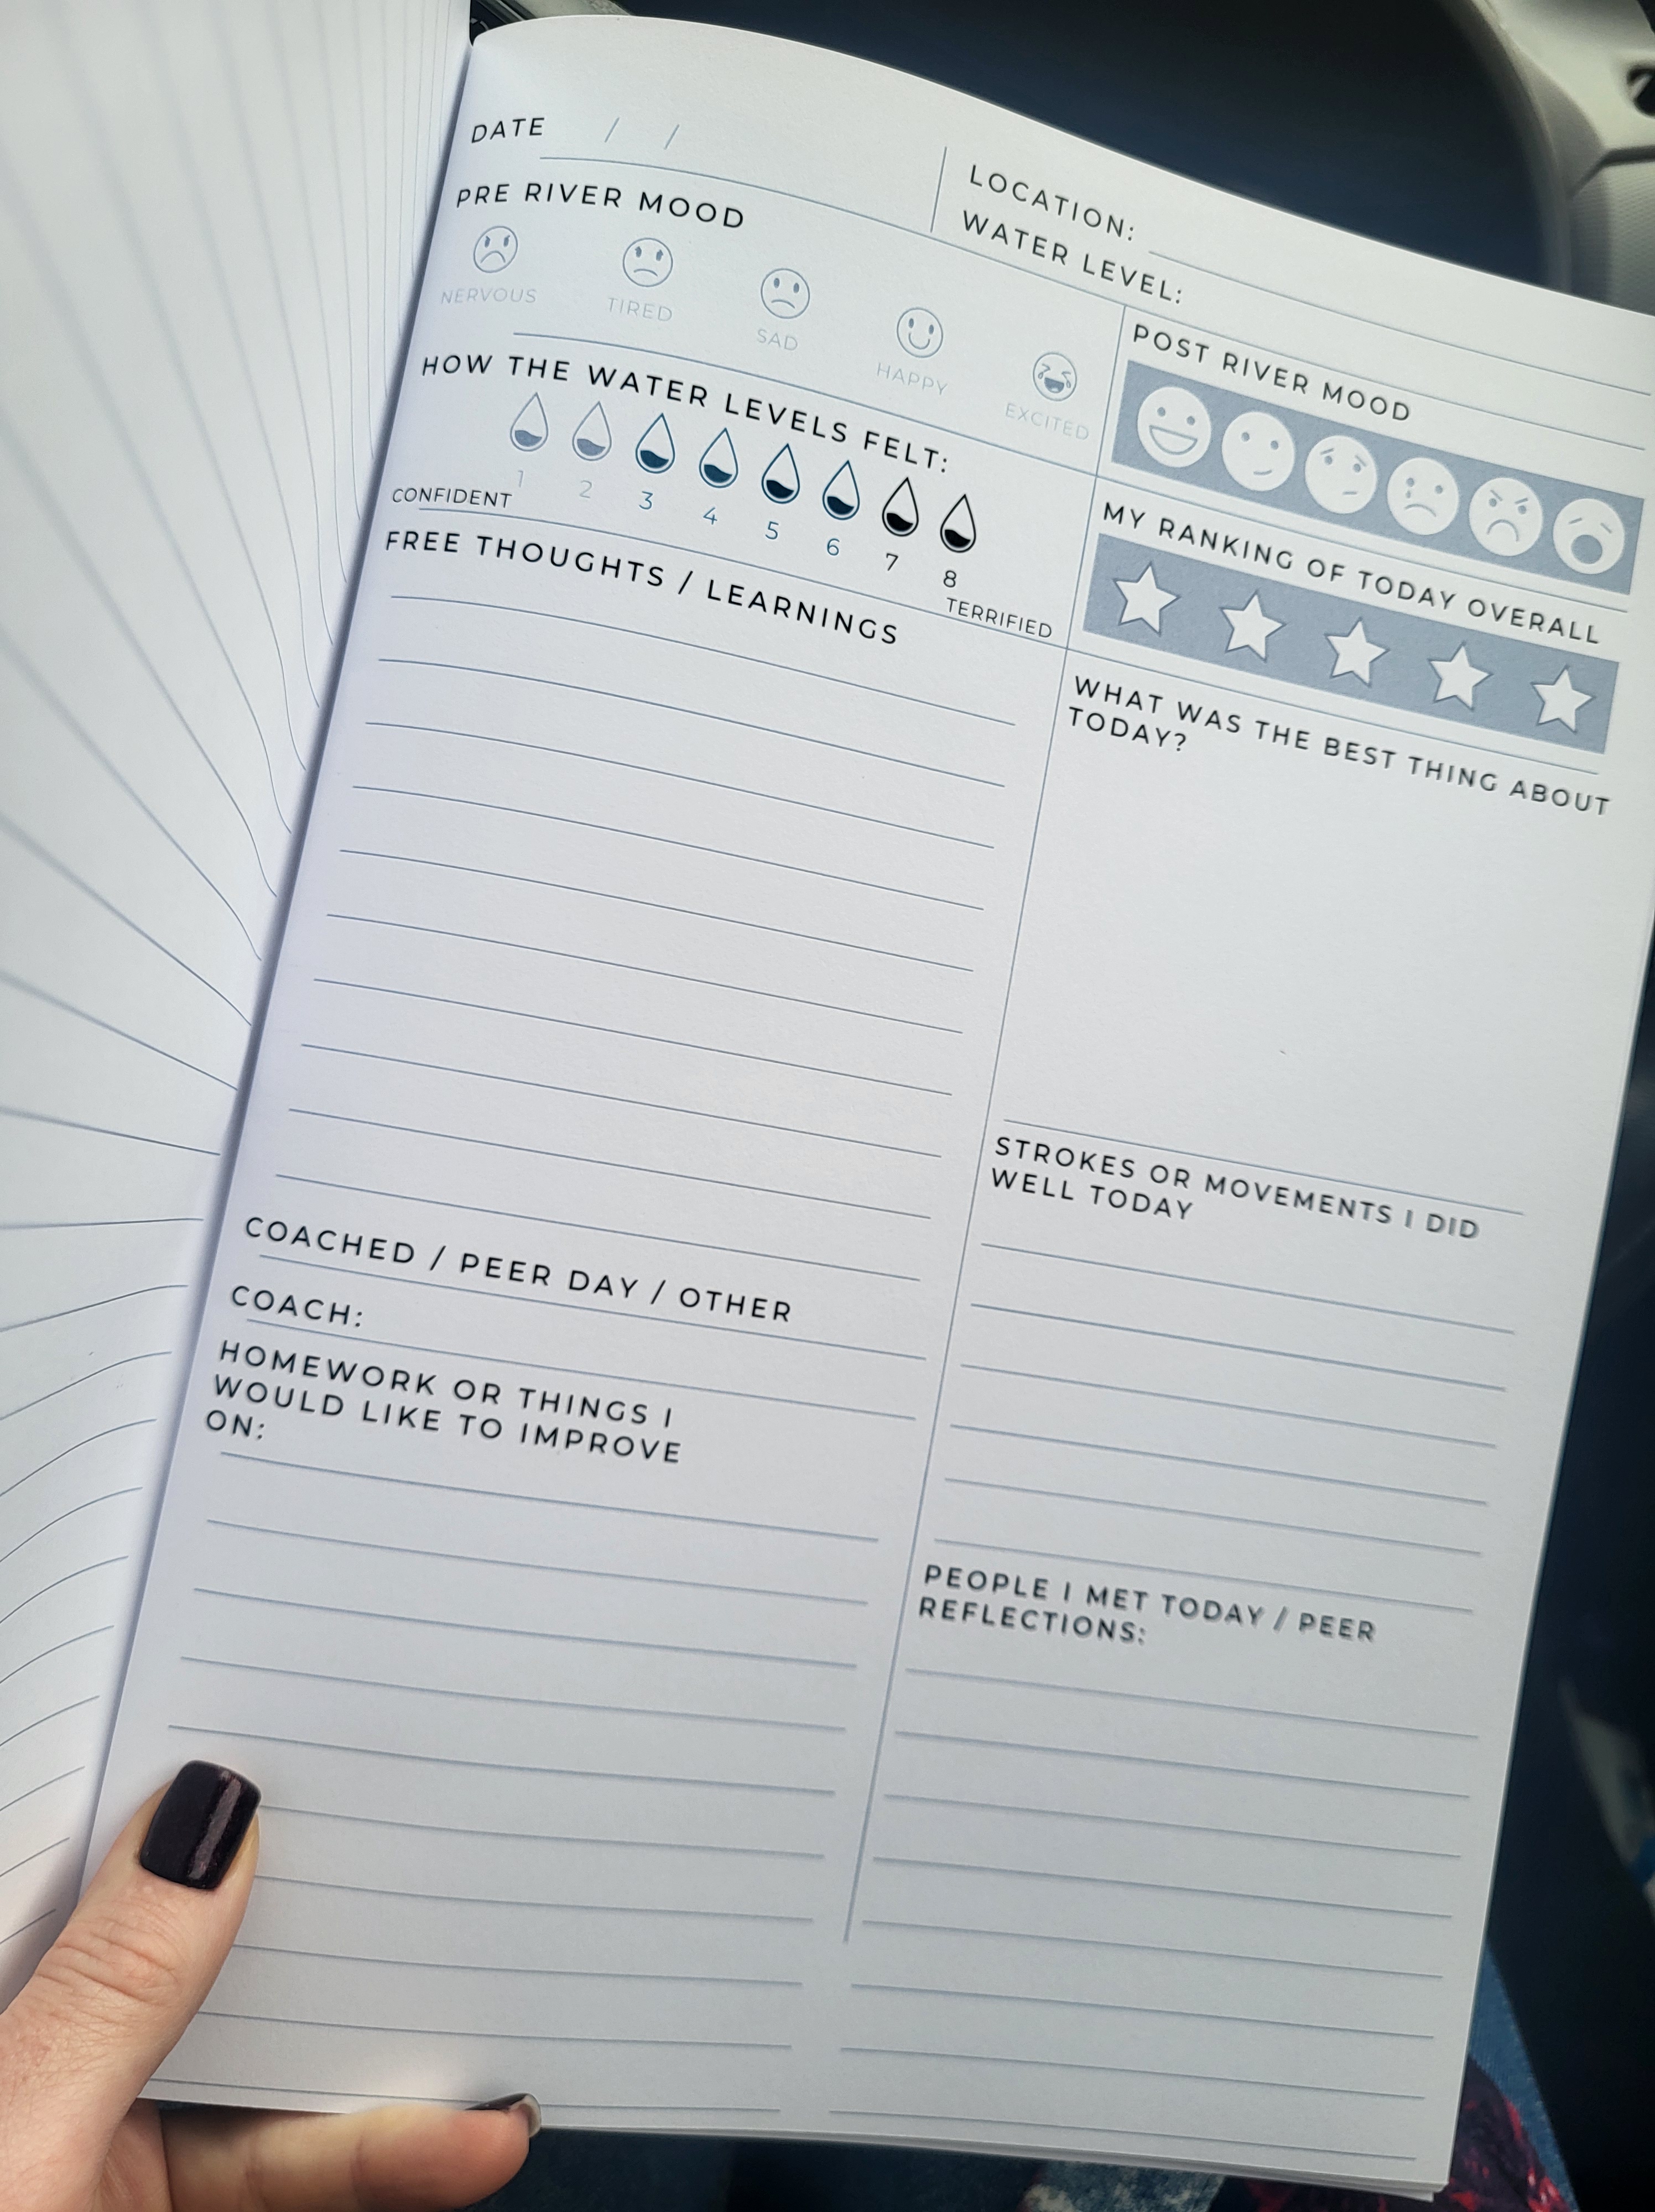 DATE / /
LOCATION:
WATER LEVEL:
PRE RIVER MOOD
NERVOUS TIRED SAD HAPPY EXCITED
HOW THE WATER LEVELS FELT:
1 2 3 4 5 6 7 8
CONFIDENT TERRIFIED
FREE THOUGHTS / LEARNINGS
COACHED / PEER DAY / OTHER
COACH:
HOMEWORK OR THINGS I
WOULD LIKE TO IMPROVE
ON:
POST RIVER MOOD
MY RANKING OF TODAY OVERALL
WHAT WAS THE BEST THING ABOUT
TODAY?
STROKES OR MOVEMENTS I DID
WELL TODAY
PEOPLE I MET TODAY / PEER
REFLECTIONS: